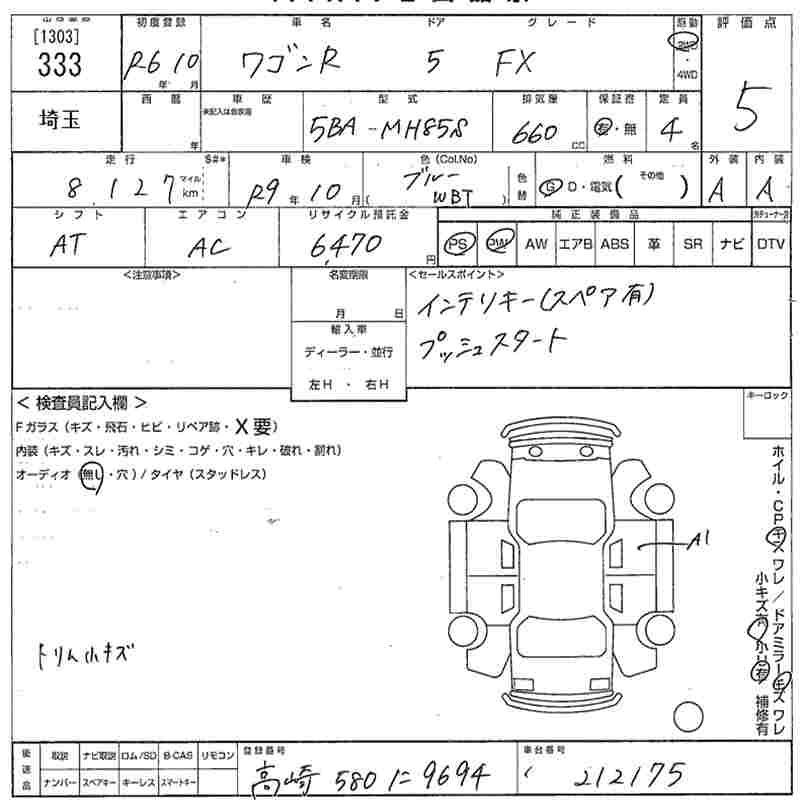 [1303]
333
初度登録
R6 10
年 月
車名
ワゴンR
ドア
5
グレード
FX
駆動
2WD
・
4WD
評価点
5
埼玉
西暦
年
車歴
未記入は自家用
型式
5BA-MH85S
排気量
660
CC
保証書
有・無
定員
4
名
走行
8,127
マイル
km
S#*
車検
R9年10月
色(Col.No)
ブルー
(WBT)
色替
燃料
G D・電気( その他 )
外装
A
内装
A
シフト
AT
エアコン
AC
リサイクル預託金
6,470
円
純正装備品
PS PW AW エアB ABS 革 SR ナビ
DTV
<注意事項>
名変期限
月 日
輸入車
ディーラー・並行
左H ・ 右H
<セールスポイント>
インテリキー(スペア有)
プッシュスタート
キーロック
< 検査員記入欄 >
Fガラス (キズ・飛石・ヒビ・リペア跡・X要)
内装 (キズ・スレ・汚れ・シミ・コゲ・穴・キレ・破れ・割れ)
オーディオ (無し・穴) / タイヤ (スタッドレス)
A1
ホイル・CPキズ ワレ / ドアミラーキズ ワレ
小キズ有 小凹有 補修有
トリム小キズ
後送品
取説 ナビ取説 ロム/SD B-CAS リモコン
ナンバー スペアキー キーレス スマートキー
登録番号
高崎 580 に 9694
車台番号
212175